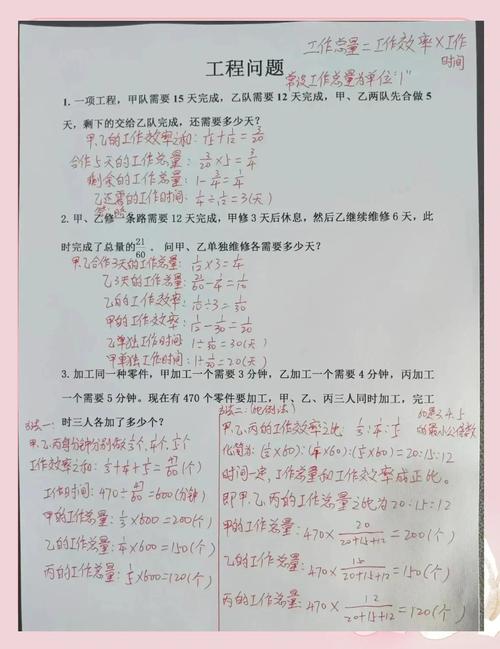 工作总量=工作效率×工作时间
工程问题
常设工作总量为单位"1"
1. 一项工程，甲队需要 15 天完成，乙队需要 12 天完成，甲、乙两队先合做 5
天，剩下的交给乙队完成，还需要多少天？
甲、乙的工作效率之和: 1/15+1/12=3/20
合作5天的工作总量: 3/20×5=3/4
剩余的工作总量: 1-3/4=1/4
乙还需的工作时间: 1/4÷1/12=3(天)
2. 甲、乙修一条路需要 12 天完成，甲修 3 天后休息，然后乙继续维修 6 天，此
时完成了总量的21/60。 问甲、乙单独维修各需要多少天？
甲、乙合作3天的工作总量: 1/12×3=1/4
乙3天的工作总量: 21/60-1/4=1/10
乙的工作效率: 1/10÷3=1/30
甲的工作效率: 1/12-1/30=1/20
乙单独工作时间: 1÷1/30=30(天)
甲单独工作时间: 1÷1/20=20(天)
3. 加工同一种零件，甲加工一个需要 3 分钟，乙加工一个需要 4 分钟，丙加工
一个需要 5 分钟。现在有 470 个零件要加工，甲、乙、丙三人同时加工，完工
时三人各加了多少个？
方法一:
甲、乙、丙每分钟分别做1/3个、1/4个、1/5个
工作效率之和: 1/3+1/4+1/5=47/60(个)
工作时间: 470÷47/60=600(分钟)
甲的工作总量: 1/3×600=200(个)
乙的工作总量: 1/4×600=150(个)
丙的工作总量: 1/5×600=120(个)
方法二:(比例法)
甲、乙、丙的工作效率之比: 1/3:1/4:1/5
60是3.4.5的最小公倍数
化简为: (1/3×60):(1/4×60):(1/5×60)=20:15:12
时间一定,工作总量和工作效率成正比。
即甲、乙、丙的工作总量之比为20:15:12
甲的工作总量: 470×20/20+15+12=200(个)
乙的工作总量: 470×15/20+15+12=150(个)
丙的工作总量: 470×12/20+15+12=120(个)